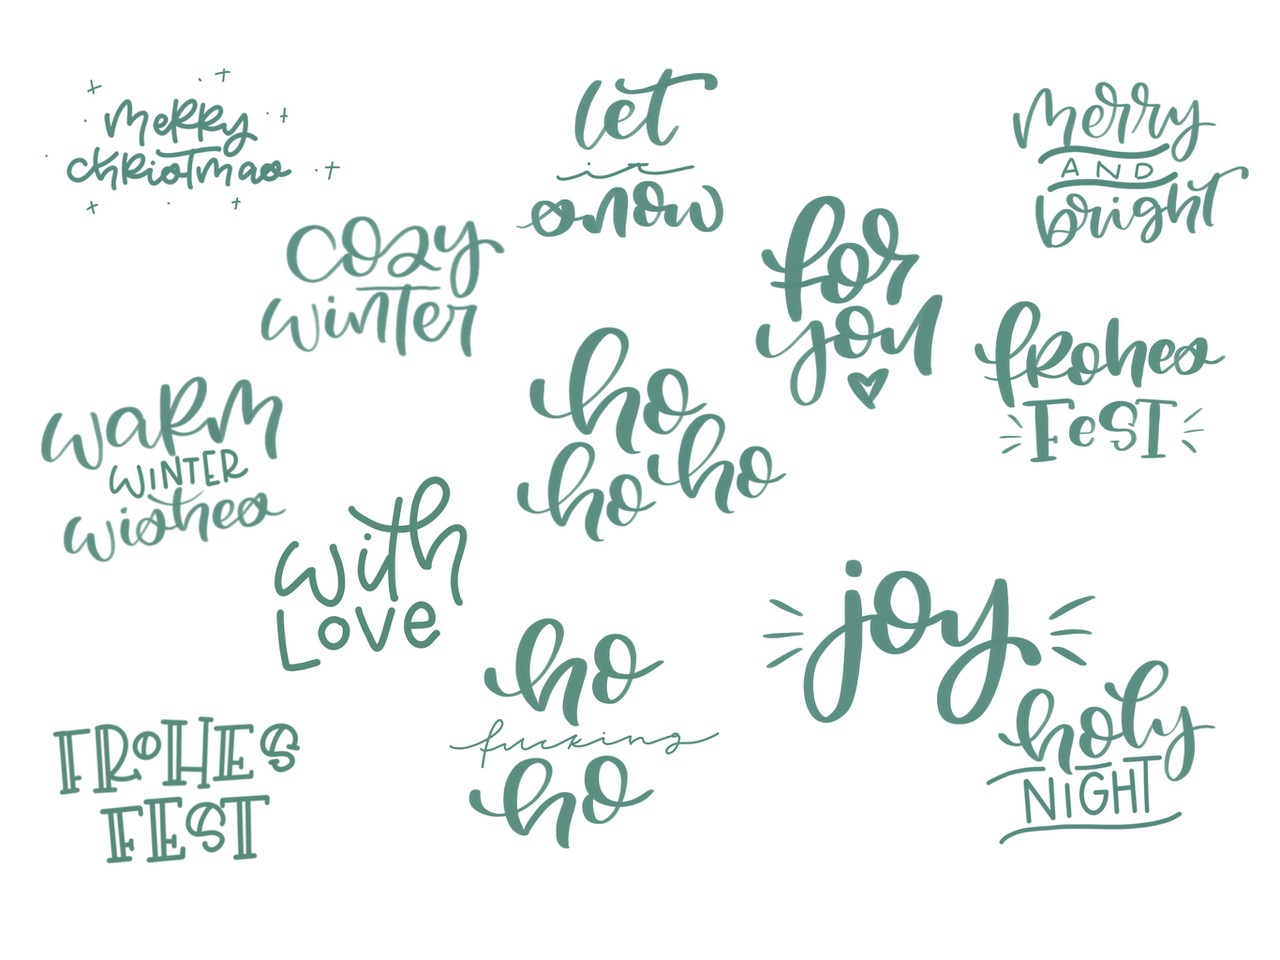 merry
christmas
let
it
snow
merry
AND
bright
cozy
winter
for
you
frohes
FeST
warm
WINTER
wishes
ho
ho ho
with
Love
joy
ho
fucking
ho
holy
NIGHT
FROHES
FEST